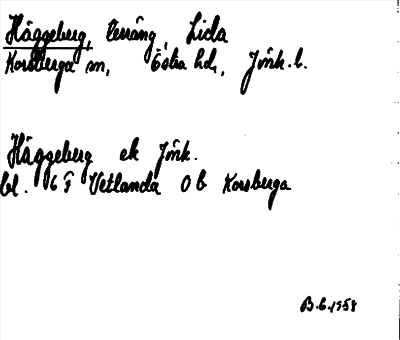 Häggeberg, terräng, Lida
Korsberga sn, Östra hd, Jönk. l.
Häggeberg ek Jönk.
bl. 6 F Vetlanda 0 b Korsberga
B.G. 1958